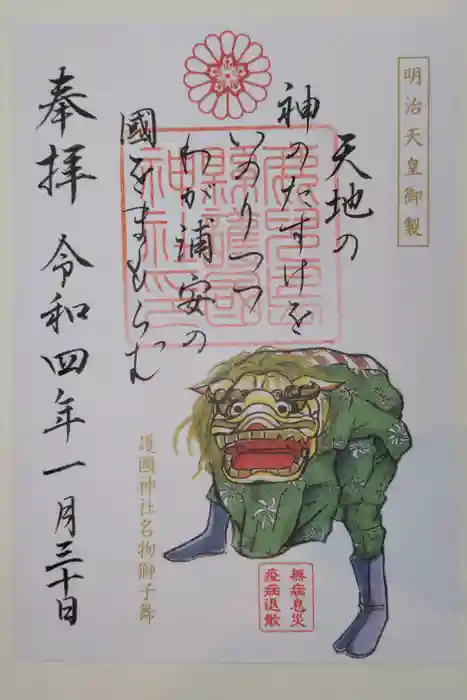 明治天皇御製
天地の
神のたすけを
いのりつつ
わが浦安の
國をまもらむ
奉拝 令和四年一月三十日
護國神社名物獅子舞
無病息災
疫病退散